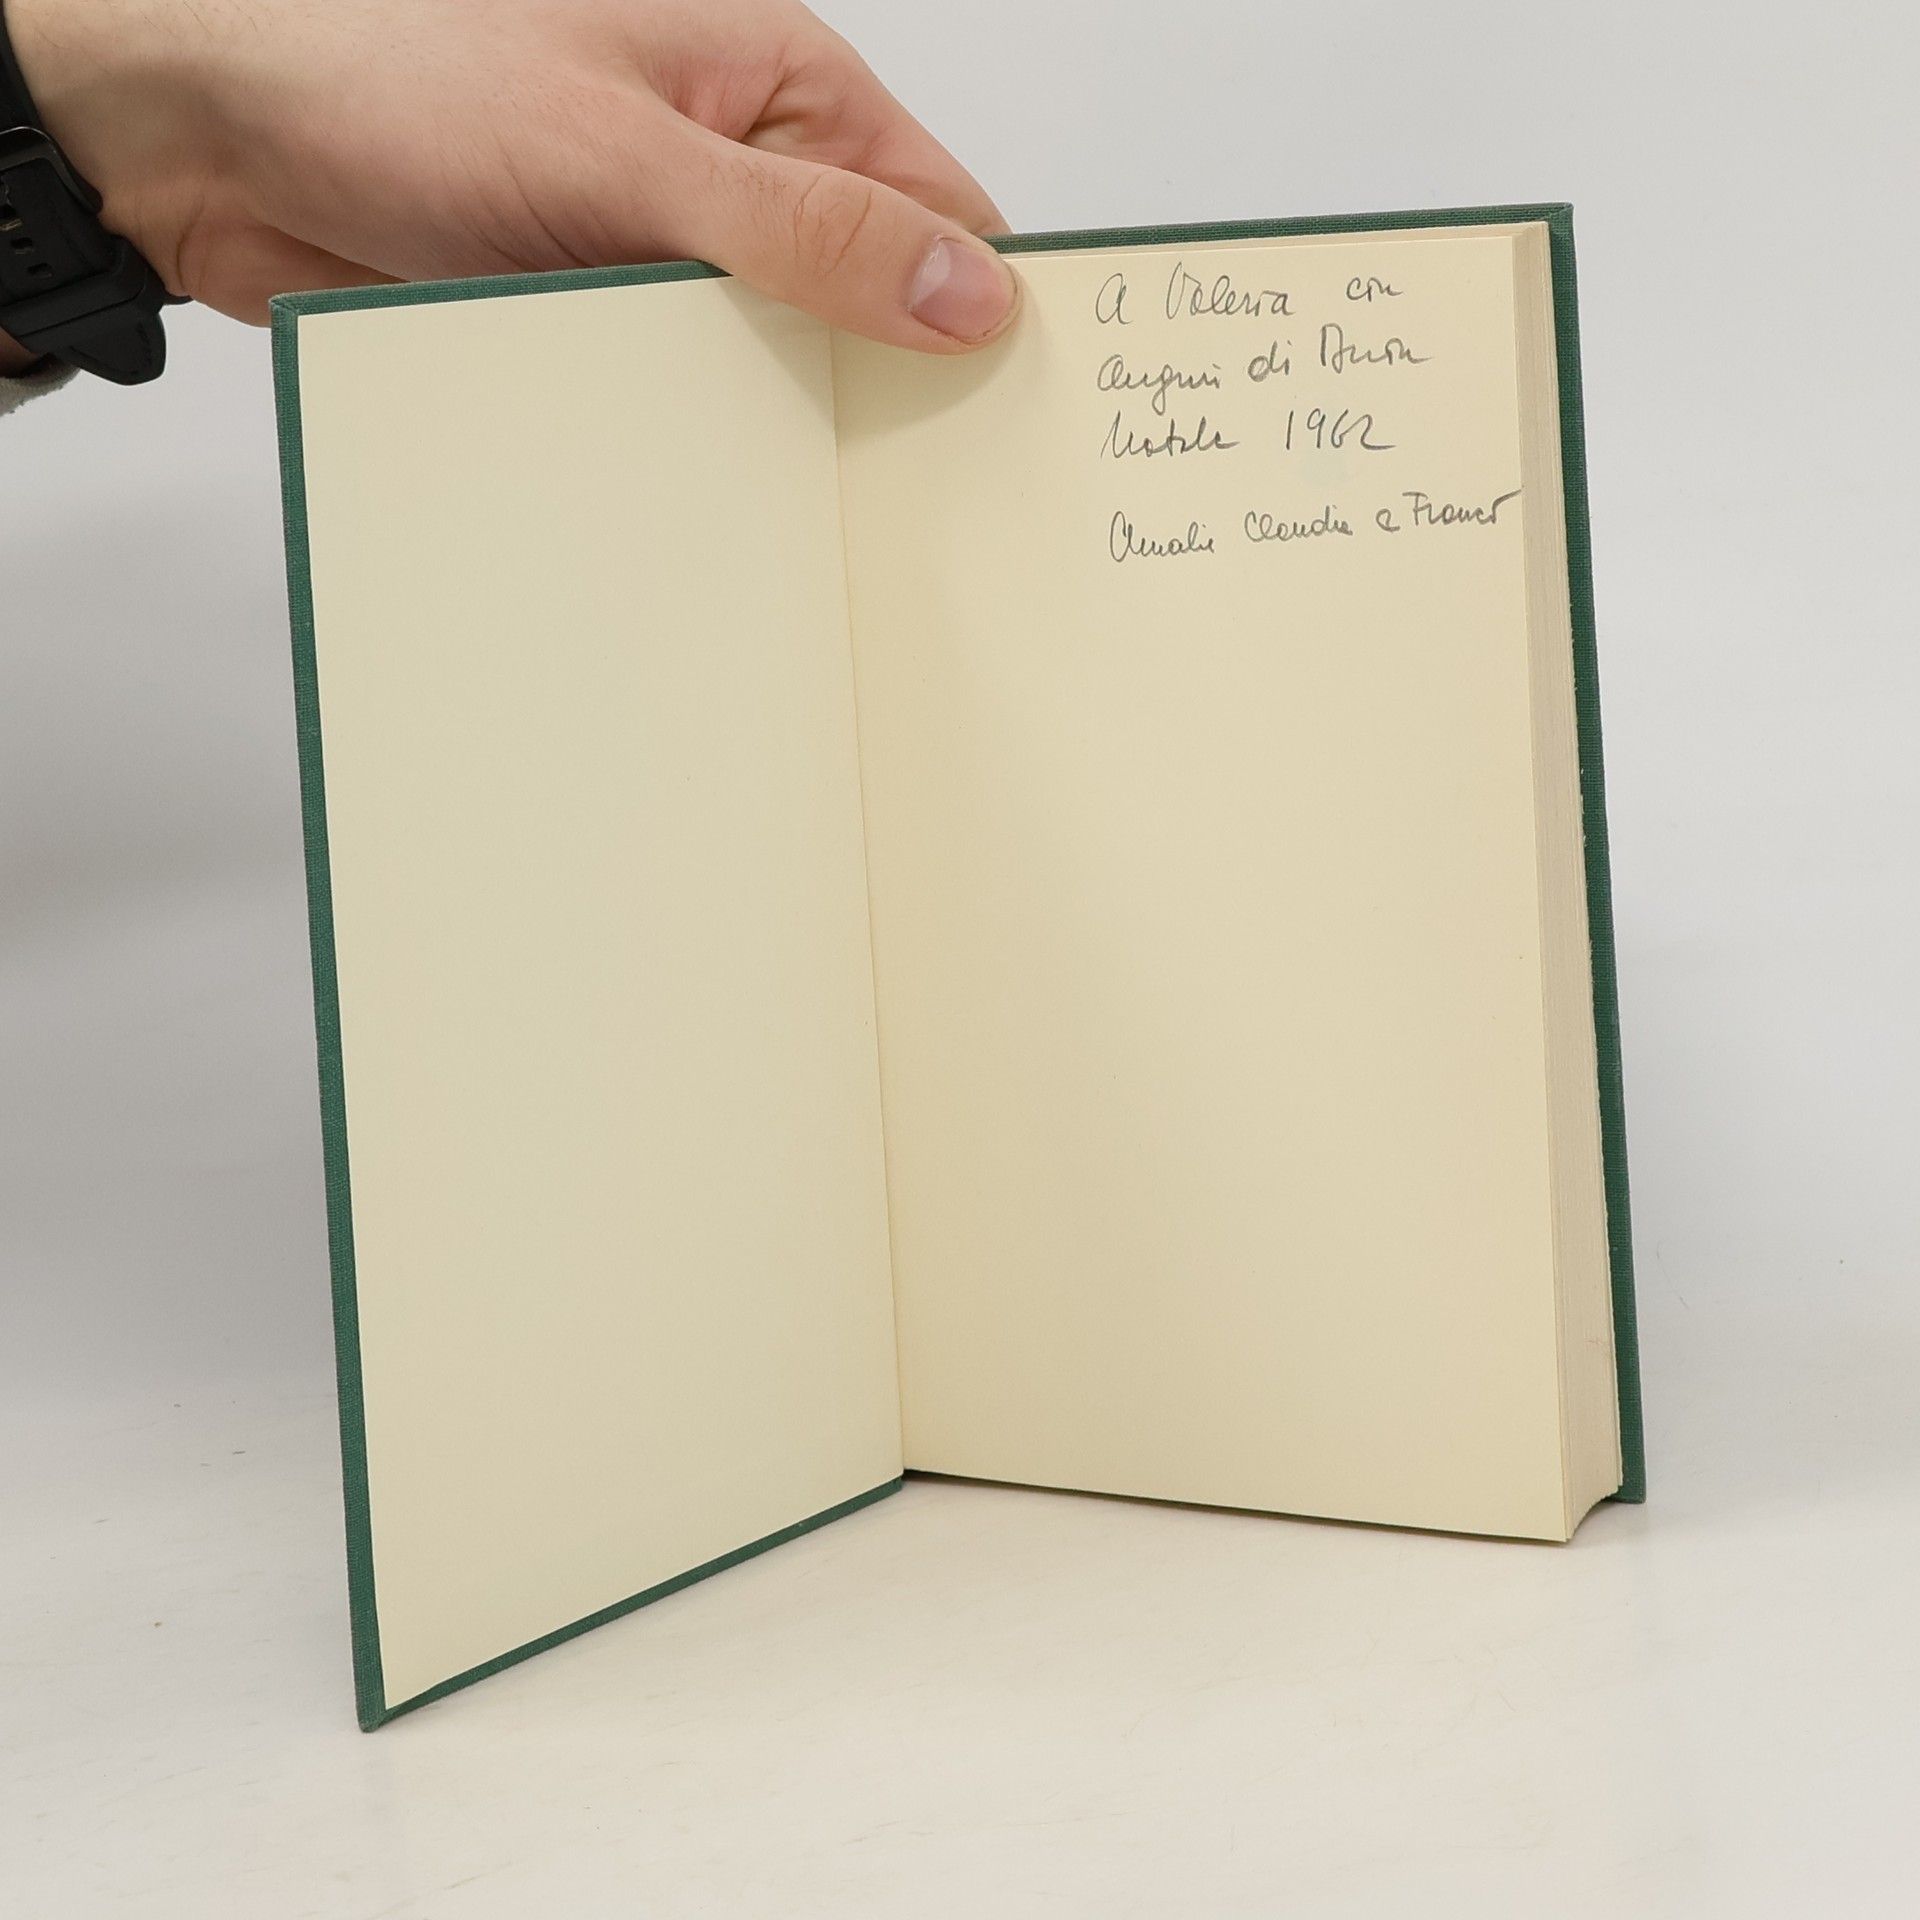 A Valeria con
Auguri di Buon
Natale 1962
Amalia Claudia e Franco